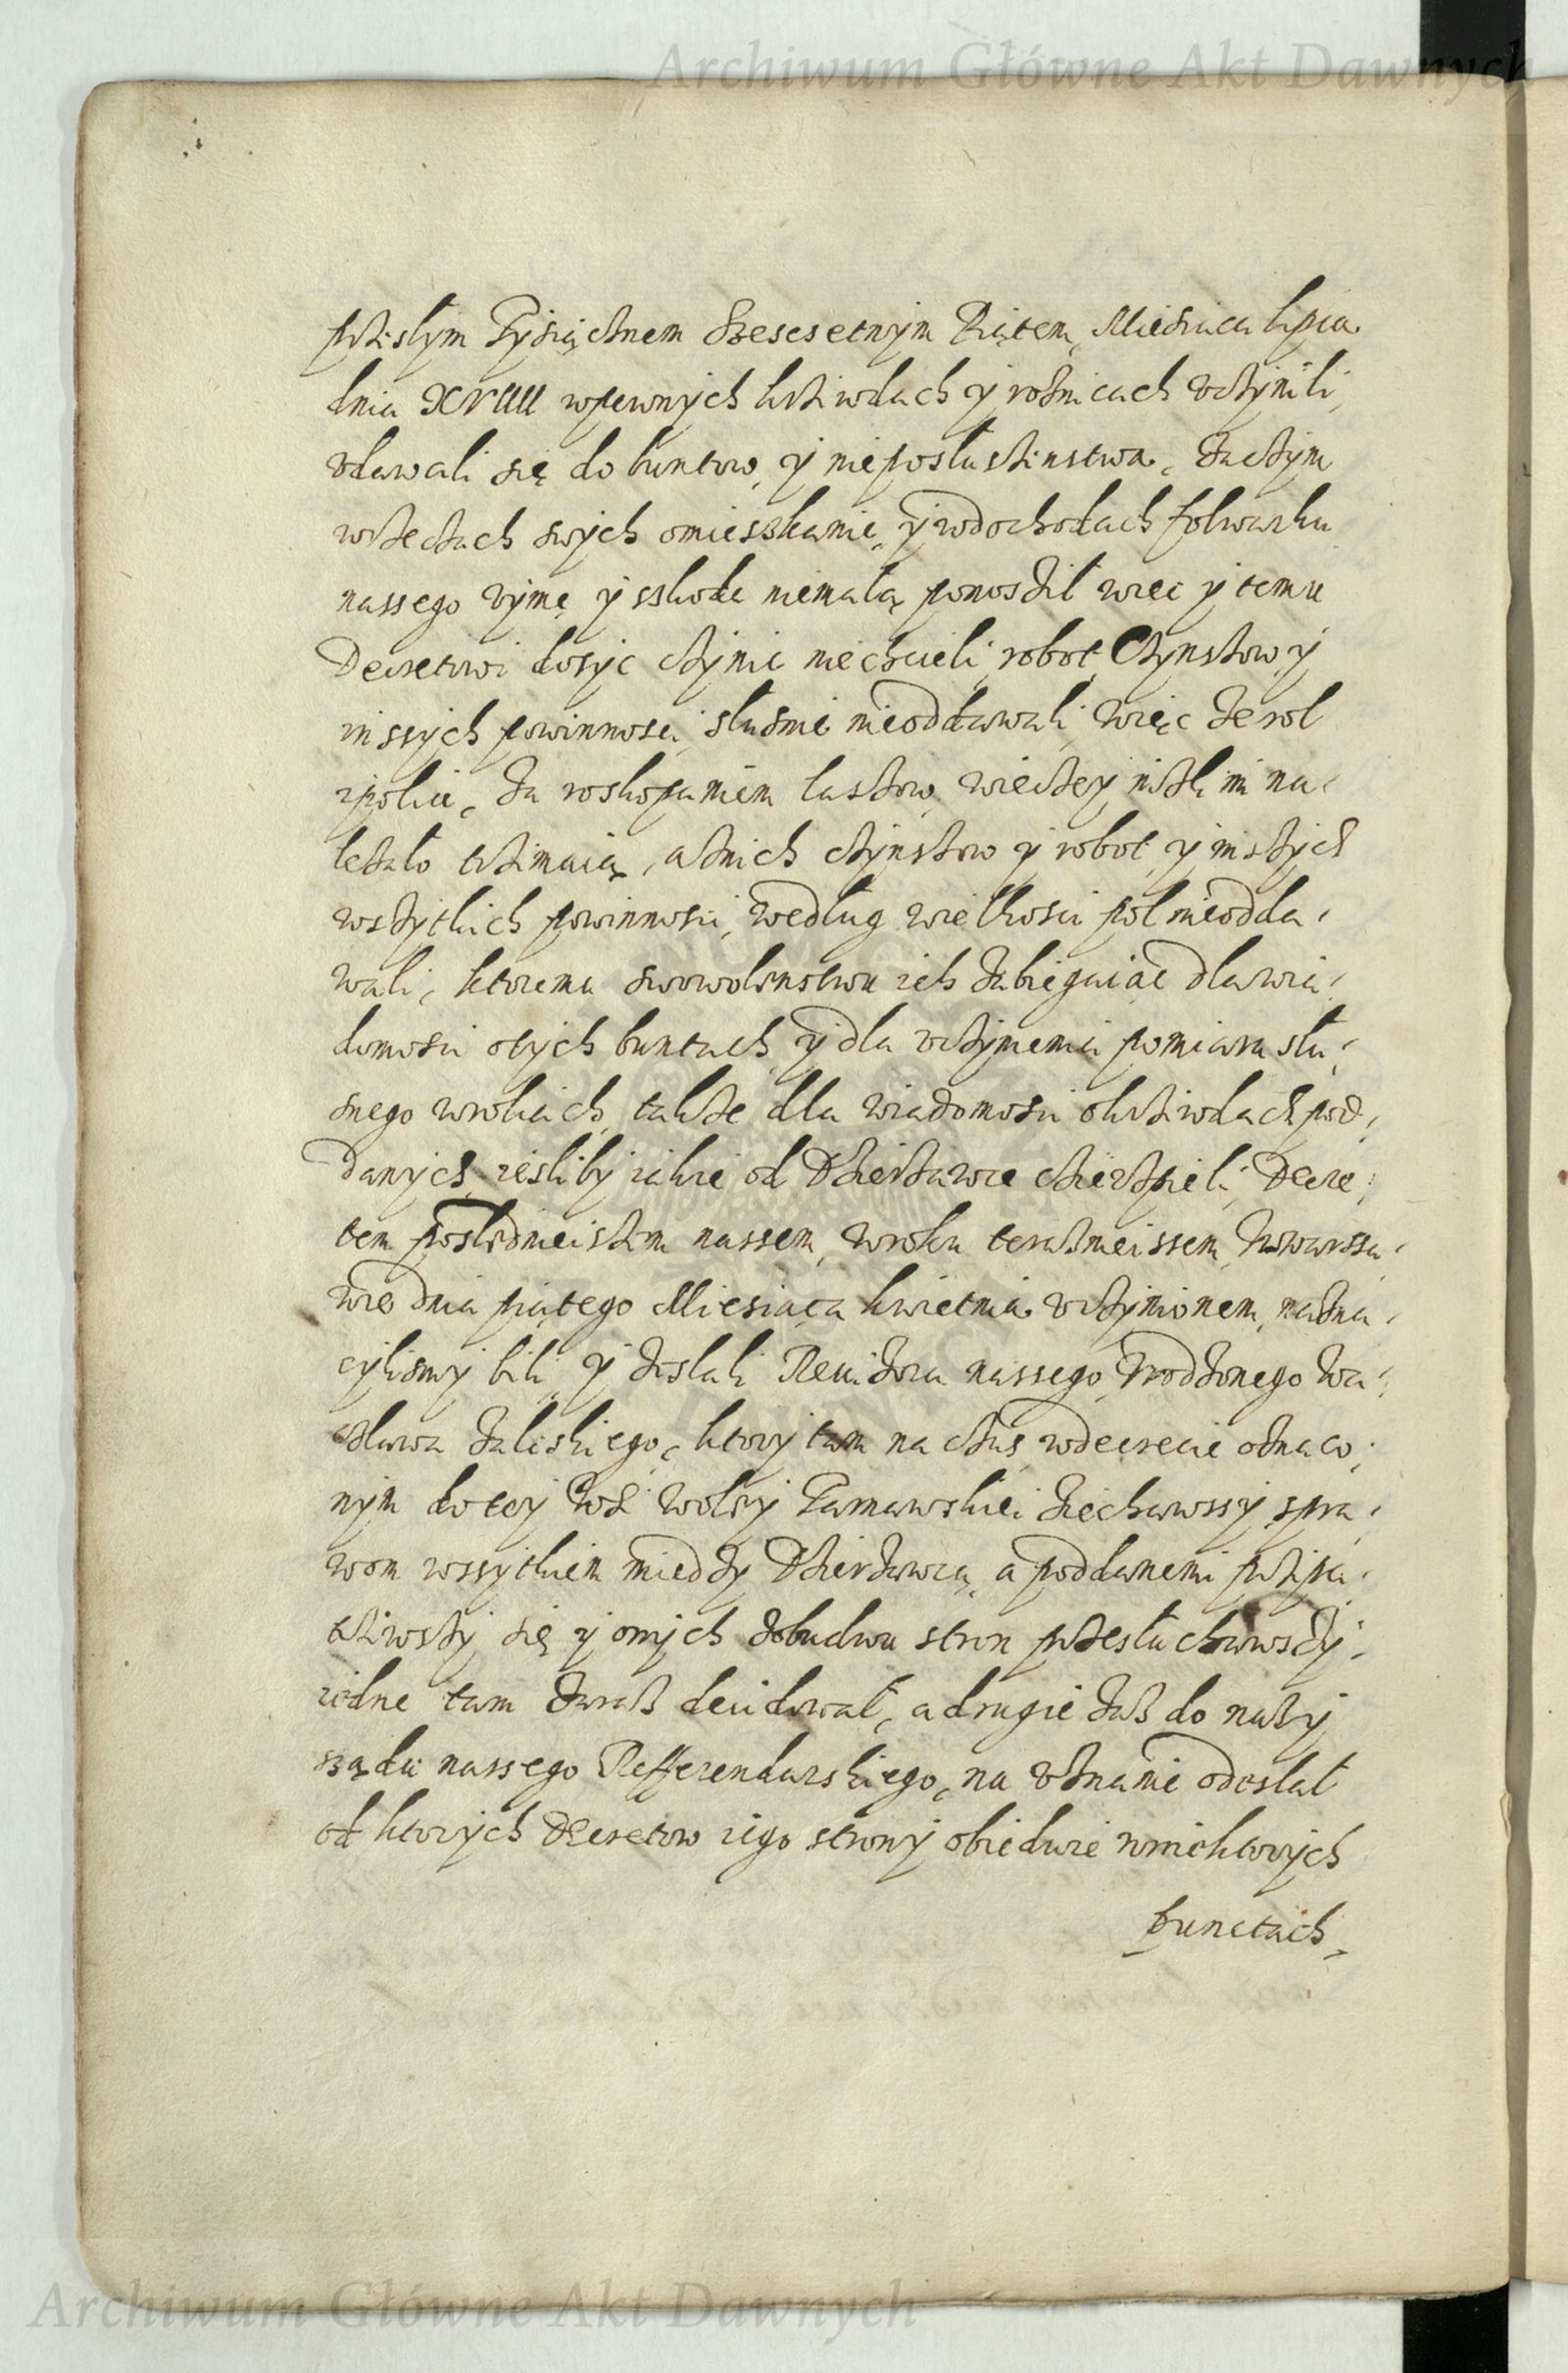 Archiwum Główne Akt Dawnych
przeslym Tysiącznem Szescsetnym Piątem, Miesiaca lipca
dnia XVIIII wpewnych krziwdach y roznicach vczynili,
vdawali się do buntow, y nieposłuszenstwa, zaczym
wrzeczach swych omieszkanie, y wdochodach folwarku
nassego vymę y sskode niemałą ponosził więc y temu
Decretowi dosyc czynic niechcieli, robot Czynszow y
inssych powinnosci słusznie nieoddawali, więc ze rol
ypolic, za roskopaniem lassow, wieczey niżli im na-
lezało trzimaią, a znich czynszow y robot, y inszych
wszytkich powinnosci, według wielkosci pol nieodda-
wali, ktoremu swowolenstwu ich zabiegaiąc dla wia-
domosci otych buntach, y dla vczynienia pomiaru słu-
sznego wrolach, takze dla wiadomosci okrziwdach pod-
danych, iesliby iakie od Dzierzawce cierzpieli, Decre-
tem poslednieiszem nassem, wroku teraznieissem, w Warssa-
wie dnia piątego Miesiąca kwietnia vczynionem, nazna-
cylismy bili y zeslali Revizora nassego Vrodzonego Wa-
cława Zaliskiego, ktory tam na czas wdecrecie oznaco-
nym do tey Wsi Woley Tarnawskiei ziechawssy, spra-
wom wssytkiem miedzy Dzierzawcą, a poddanemi przipa-
trziwszy się y onych zobudwu stron przesłuchawszy,
iedne tam zaraz decidował, a drugie zaś do naszy
sządu nassego Refferendarskiego, na vznanie odesłał
od ktorych Decretow iego strony obiedwie wniektorych
punctach,
Archiwum Główne Akt Dawnych